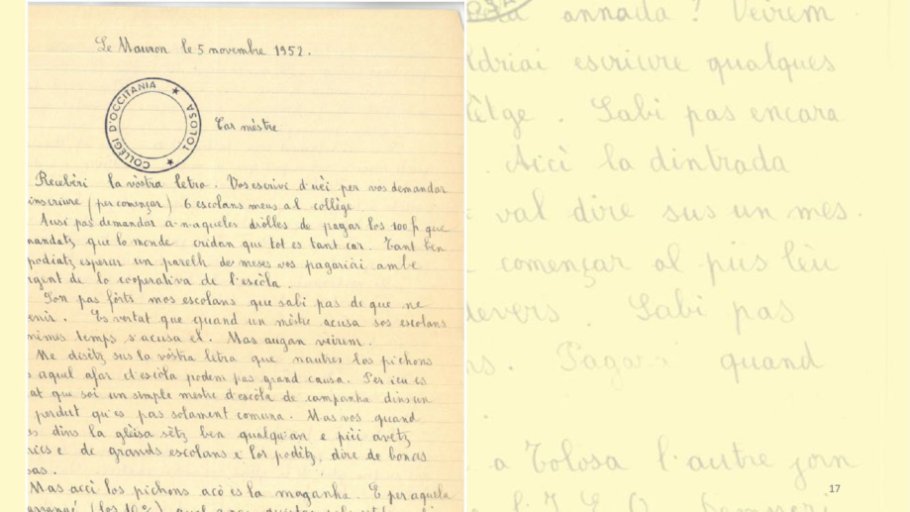 Le Mauron le 5 novembre 1952.
COLLÈGI D'OCCITANIA
TOLOSA
Car mèstre
Recebèri la vòstra letra. Vos escrivi d'uèi per vos demandar
inscriure (per començar) 6 escolans meus al collège.
Ausi pas demandar a-n-aqueles dròlles de pagar los 100 f que
mandatz que lo monde cridan que tot es tant car. Tant ben
podiatz esperar un parelh de meses vos pagariái ambe
argent de la cooperativa de l'escòla.
Son pas fòrts mos escolans que sabi pas de que ne
venir. Es vertat que quand un mèstre acusa sos escolans
mêmes temps s'acusa el. Mas augan veirem.
Me disètz sus la vòstra letra que nautres los pichons
aquel afar d'escòla podem pas grand causa. Per ieu es
at que soi un simple mestre d'escòla de campanha dins un
perdut qu'es pas solament comuna. Mas vos quand
es dins la glèisa sètz ben qualqu'un e puèi avètz
e de grands escolans e los poditz, dire de bonas
Mas accí los pichons acò es la maganha. E per aquela
annada! Veirem
escriure qualques
Sabi pas encara
Aicí la dintrada
val dire sus un mes.
començar al pus lèu
devers. Sabi pas
quand
a Tolosa l'autre jorn
17